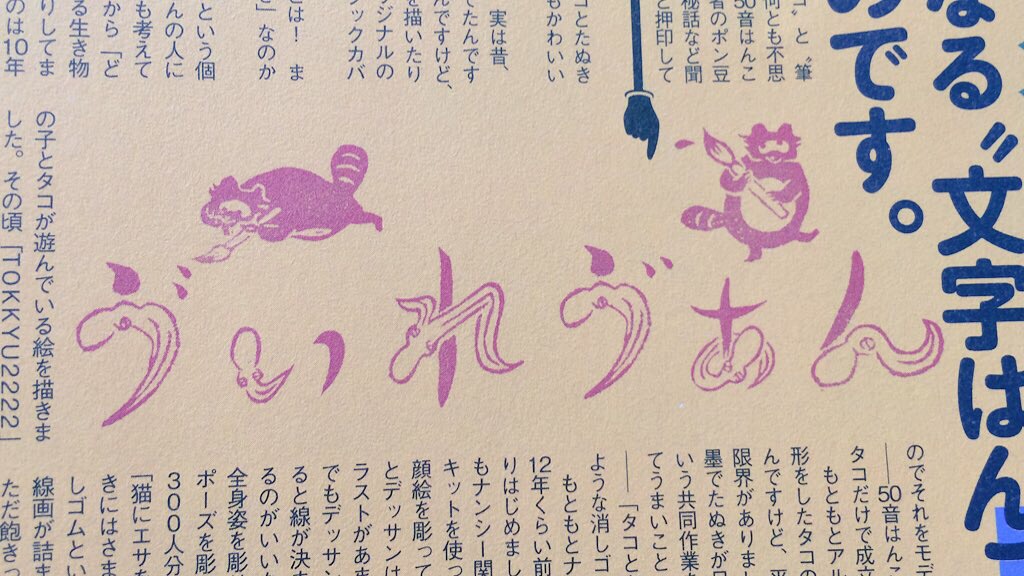 なる〝文字はん
のです。
と〝筆
何とも不思
50音はんこ
者のポン豆
秘話など聞
と押印して
コとたぬき
もかわいい
実は昔、
てたんです
んですけど、
を描いたり
ジナルの
ックカバ
とは！　ま
」なのか
という個
んの人に
も考えて
から「ど
る生き物
りしてま
のは10年
ゔぃれゔぁん
の子とタコが遊んでいる絵を描きま
した。その頃「TOKKYU2222」
のでそれをモデ
――50音はんこ
タコだけで成立
もともとアル
形をしたタコの
んですけど、平
限界がありま
墨でたぬきが
いう共同作業
てうまいこと
――「タコと
ような消しゴ
もともとナ
12年くらい前
りはじめまし
もナンシー関
キットを使っ
顔絵を彫って
とデッサンは
ラストがあま
でもデッサ
ると線が決ま
るのがいいか
全身姿を彫
ポーズを彫
300人分
「猫にエサを
きにはさま
しゴムとい
線画が詰ま
ただ飽き